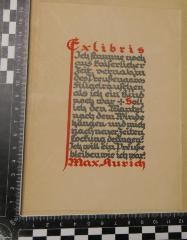 Exlibris
Ich stamme noch
aus Kaiserlicher
Zeit, vernahm
des Preußenaars
Flügelrauschen
als ich ein Kind
noch war + Soll
ich den Mantel
nach dem Winde
hängen, und nach
nach neuer Zeiten
Lockung
Ich will ein Preuße
bleiben wie ich war!
Max Aurich